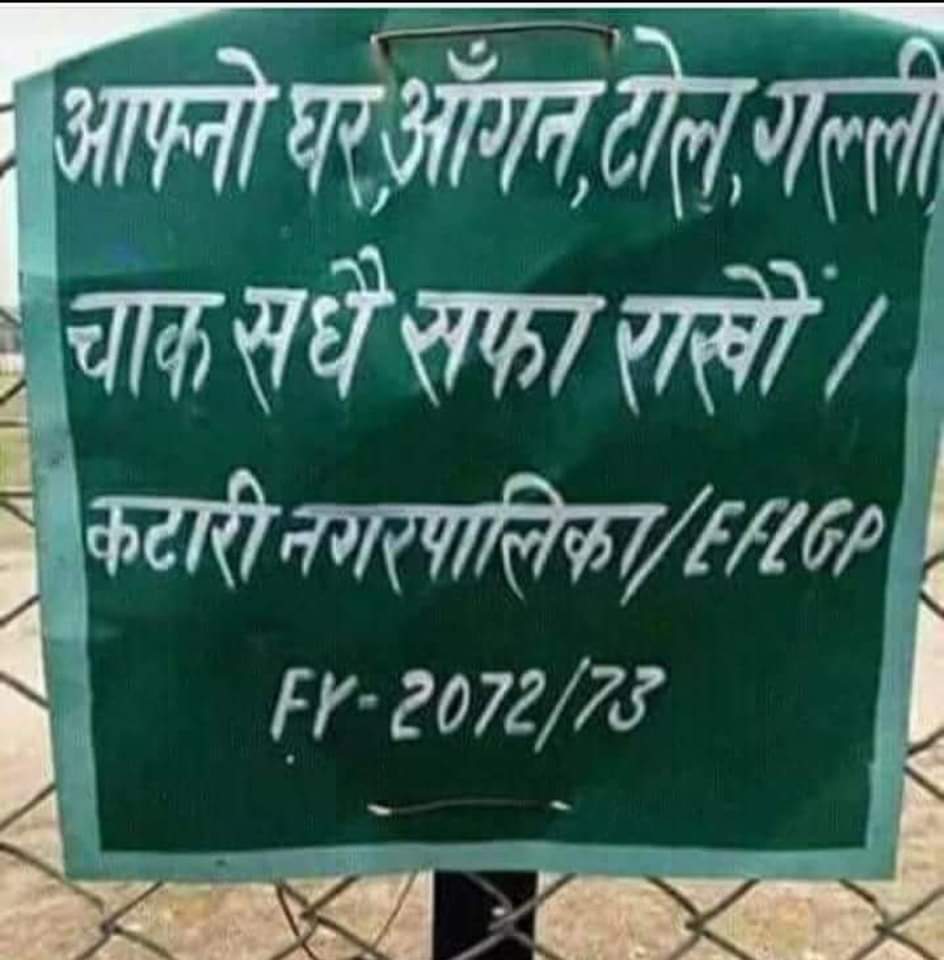 आफ्नो घर, आँगन, टोल, गल्ली,
चाक सधै सफा राखौं ।
कटारी नगरपालिका/EFLGP
FY-2072/73